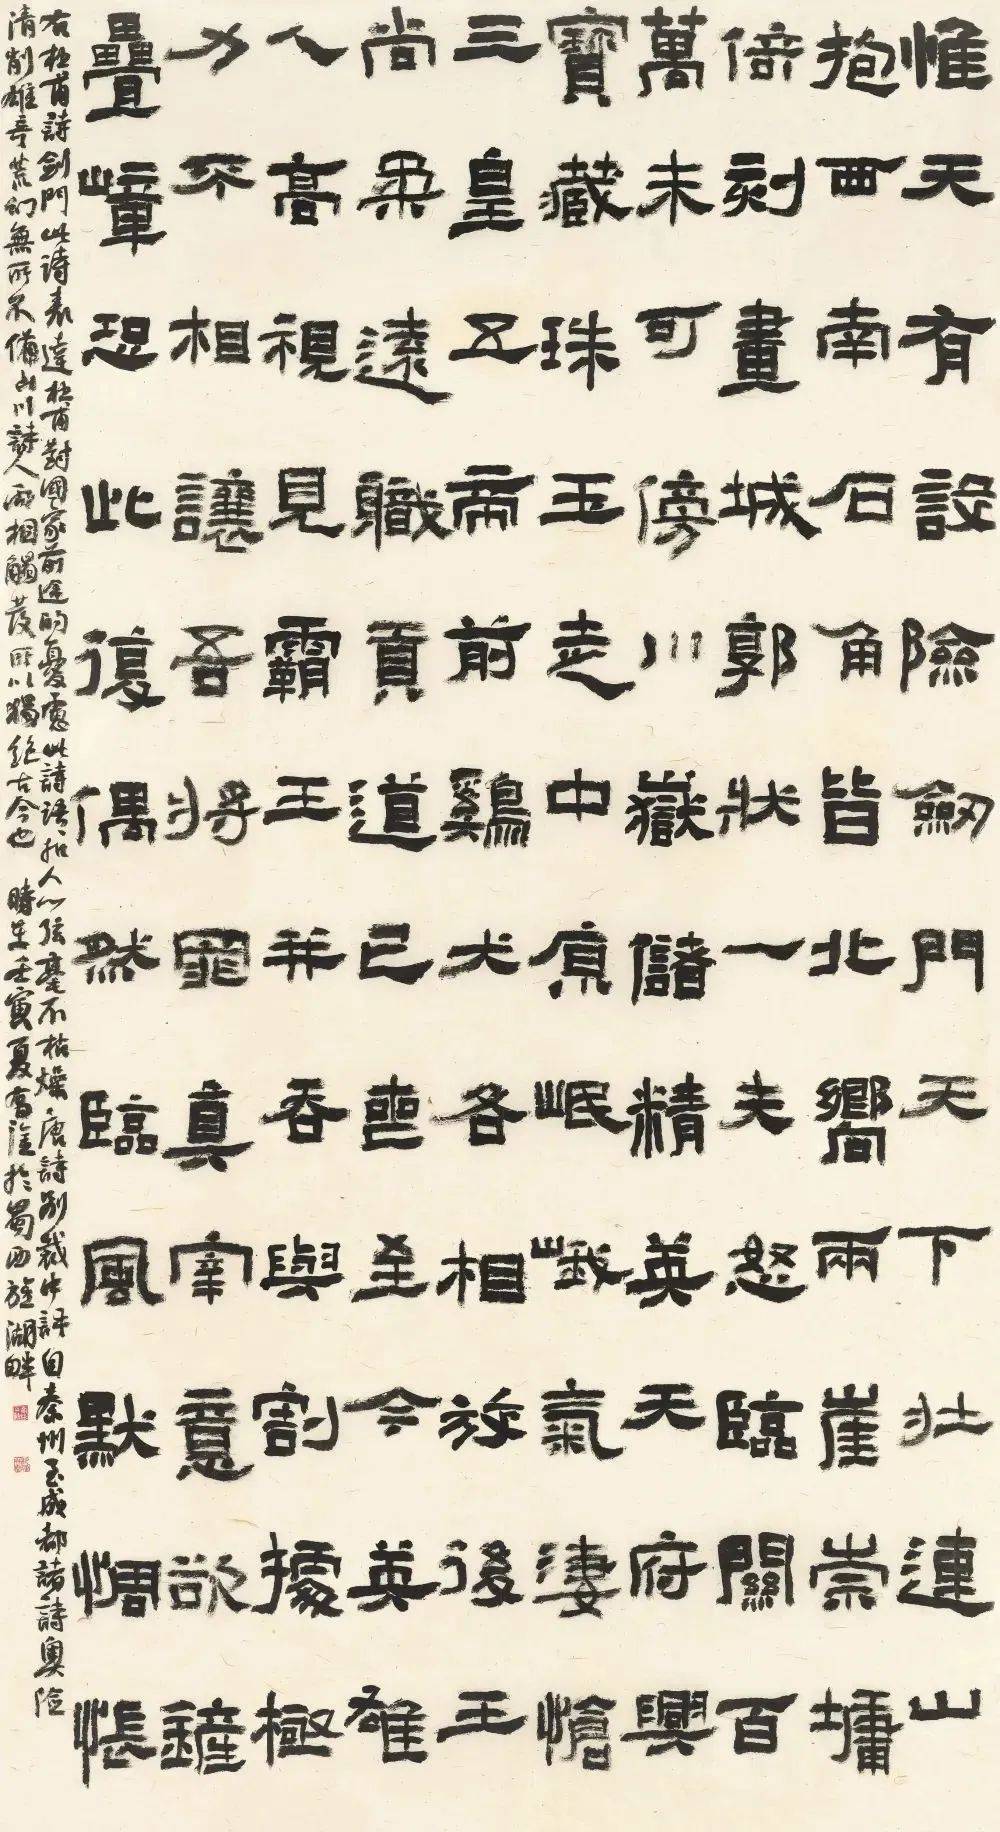 惟天有設險劒門天下壯連山
抱西南石角皆北嚮兩崖崇墉
倚刻畫城郭狀一夫怒臨關百
萬未可傍川嶽儲精英天府興
寶藏珠玉走中原岷峨氣淒愴
三皇五帝前鷄犬各相放後王
尚柔遠職貢道已喪至今英雄
人高視見霸王并吞與割據極
力不相讓吾將罪真宰意欲鏟
疊嶂恐此復偶然臨風默惆悵
右杜甫詩劍門此詩表達杜甫對國家前途的憂慮此詩語語扣人心弦毫不枯燥唐詩別裁中評自秦州至成都諸詩奧險
清削雄奇荒幻無所不備山川詩人兩相觸發所以獨絕古今也 時在壬寅夏奮隆於蜀西旌湖畔